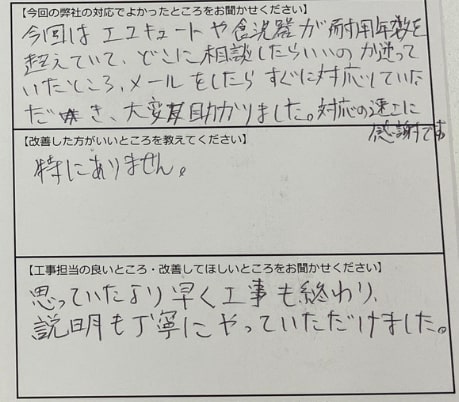 【今回の弊社の対応でよかったところをお聞かせください】
今回はエコキュートや食洗器が耐用年数を
超えていて、どこに相談したらいいのか迷って
いたところ、メールをしたらすぐに対応していた
だき、大変助かりました。対応の速さに
感謝です
【改善した方がいいところを教えてください】
特にありません。
【工事担当の良いところ・改善してほしいところをお聞かせください】
思っていたより早く工事も終わり、
説明も丁寧にやっていただけました。